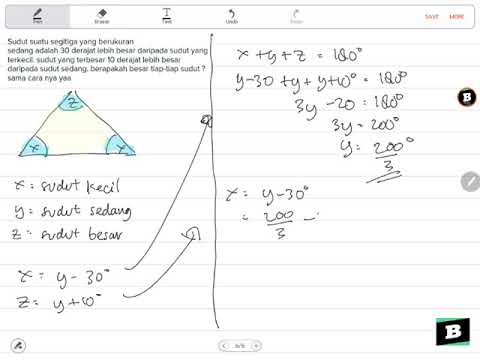 Pen
Eraser
Text
Undo
Redo
Sudut suatu segitiga yang berukuran
sedang adalah 30 derajat lebih besar daripada sudut yang
terkecil. sudut yang terbesar 10 derajat lebih besar
daripada sudut sedang. berapakah besar tiap-tiap sudut ?
sama cara nya yaa
z
x
x
x = sudut kecil
y = sudut sedang
z = sudut besar
x = y - 30°
z = y + 10°
x + y + z = 180°
y - 30 + y + y + 10° = 180°
3y - 20 = 180°
3y = 200°
y = 200°
3
x = y - 30°
= 200 -
3
B
B